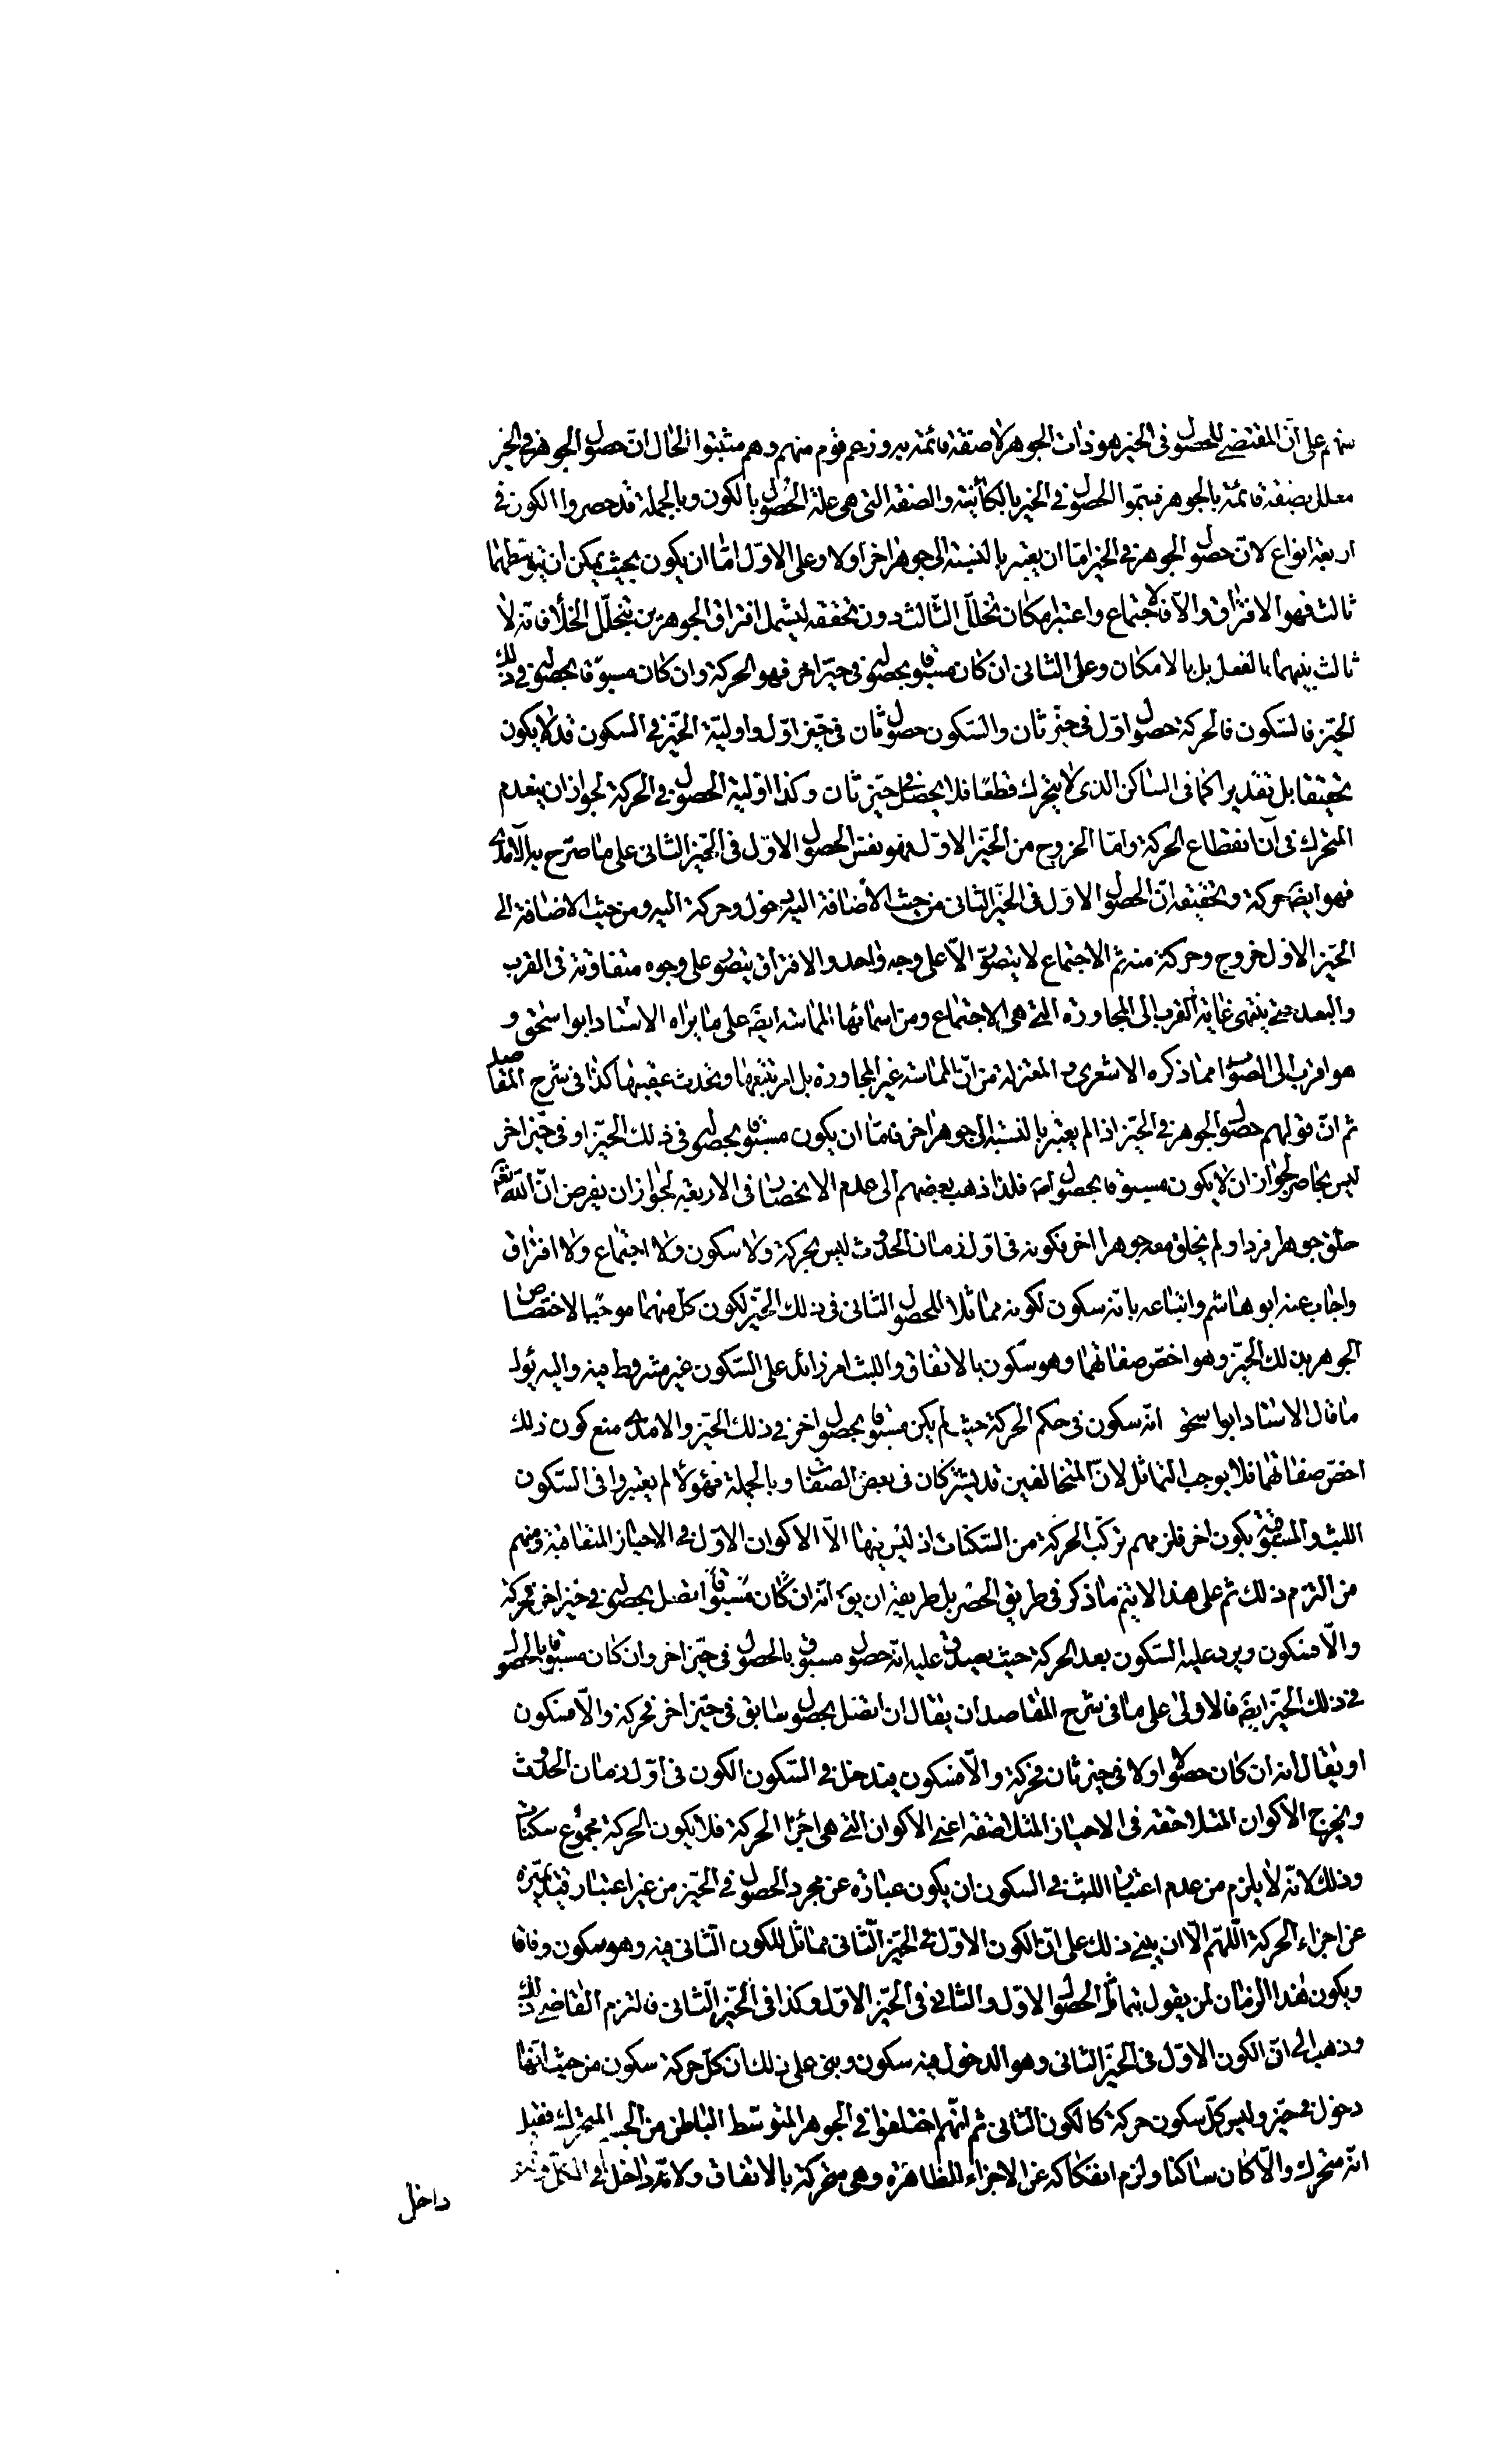 منهم على انّ المقتضى للحصول فى الحيز هو ذات الجوهر لا صفة قائمة به وزعم قوم منهم وهم مثبتوا الحال انّ حصول الجوهر فى الحيز
معلل بصفة قائمة بالجوهر فسمّوا الحصول فى الحيز بالكائنية والصفة التى هى علة الحصول بالكون وبالجملة قد حصروا الكون فى
اربعة انواع لانّ حصول الجوهر فى الحيز امّا ان يعتبر بالنسبة الى جوهر اخر اولا وعلى الاوّل امّا ان يكون بحيث يمكن ان يتوسّطهما
ثالث فهو الافتراق والّا فالاجتماع واعتبر امكان تخلّل الثّالث دون تحققه ليشمل افتراق الجوهرين بتخلّل الخلأ فانّه لا
ثالث بينهما بالفعل بل بالامكان وعلى الثانى ان كان مسبوقا بحصوله فى حيّز اخر فهو الحركة وان كان مسبوقا بحصوله فى ذلك
الحيّز فالسّكون فالحركة حصول اوّل فى حيّز ثان والسّكون حصول ثان فى حيّز اوّل واوليّة الحيّز فى السكون قد لا يكون
تحقيقا بل تقديرا كما فى السّاكن الذى لا يتحرك قطعًا فلا يحصل فى حيّز ثان وكذا اوّلية الحصول فى الحركة لجواز ان ينعدم
المتحرك فى آن انقطاع الحركة وامّا الخروج من الحيّز الاوّل فهو نفس الحصول الاوّل فى الحيّز الثانى على ما صرّح به الآمدى
فهو ايضَ حركة وتحقيقه انّ الحصول الاوّل فى الحيّز الثانى من حيث الاضافة اليه دخول وحركة اليه ومن حيث الاضافة الى
الحيّز الاول خروج وحركة منه ثم الاجتماع لا يتصوّر الّا على وجه واحد والافتراق يتصوّر على وجوه متفاوتة فى القرب
والبعد حتى ينتهى غاية القرب الى المجاورة التى هى الاجتماع ومن اسمائها المماسّة ايضَ على ما يراه الاستاد ابو اسحق و
هو اقرب الى الصّواب مما ذكره الاشعرى و المعتزلة من انّ المماسّة غير المجاورة بل امر يتبعها ويحدث عقيبها كذا فى شرح المقاصد
ثم انّ قولهم حصول الجوهر فى الحيّز اذا لم يعتبر بالنسبة الى جوهر اخر فامّا ان يكون مسبوقا بحصوله فى ذلك الحيّز او فى حيّز اخر
ليس بحاصر لجواز ان لا يكون مسبوقا بحصول اصَ فلذا ذهب بعضهم الى عدم الانحصار فى الاربعة لجواز ان يفرض انّ اللّه تعَ
خلق جوهرا فردا ولم يخلق معه جوهرا اخر فكونه فى اوّل زمان الحدوث ليس بحركة ولا سكون ولا اجتماع ولا افتراق
واجاب عنه ابو هاشم واتباعه بانّه سكون لكونه مماثلا للحصول الثانى فى ذلك الحيّز لكون كلّ منهما موجبًا لاختصاص
الجوهر بذلك الحيّز وهو اخصّ صفاتهما وهو سكون بالاتفاق واللبث امر زائد على السّكون غير مشروط فيه واليه يؤل
ما قال الاستاد ابو اسحق انّه سكون فى حكم الحركة حيث لم يكن مسبوقا بحصول اخر فى ذلك الحيّز والامدى منع كون ذلك
اخصّ صفاتهما فلا يوجب التماثل لانّ المتخالفين قد يشتركان فى بعض الصفات وبالجملة فهؤلأ لم يعتبروا فى السّكون
اللبث والمسبوقية بكون اخر فلزمهم تركّب الحركة من السّكنات اذ ليس فيها الّا الاكوان الاوّل فى الاحياز المتعاقبة ومنهم
من التزم ذلك ثم على هذا لا يتم ما ذكر فى طريق الحصر بل طريقه ان يقَ انّه ان كان مسبوقا متصل بحصوله فى حيّز اخر فحركة
والّا فسكون ويرد عليه السّكون بعد الحركة حيث يصدق عليه انّه حصول مسبوق بالحصول فى حيّز اخر وان كان مسبوقا بالحصول
فى ذلك الحيّز ايضَ فالاولى على ما فى شرح المقاصد ان يقال ان اتصل بحصول سابق فى حيّز اخر فحركة والّا فسكون
او يقال انه ان كان حصولا اولا فى حيّز ثان فحركة والّا فسكون فيدخل فى السّكون الكون فى اوّل زمان الحدوث
ويخرج الاكوان المتلاحقة فى الاحياز المتلاصقة اعنى الاكوان التى هى اجزا الحركة فلا يكون الحركة مجموع سكنات
وذلك لانّه لا يلزم من عدم اعتبار اللبث فى السكون ان يكون عبارة عن مجرد الحصول فى الحيّز من غير اعتبار قيد يميّزه
عن اجزاء الحركة اللّهمّ الّا ان يبنى ذلك على انّ الكون الاوّل فى الحيّز الثّانى مماثل للكون الثانى فيه وهو سكون وفاقا
ويكون هذا الزمان لمن يقول بتماثل الحصول الاوّل والثانى فى الحيّز الاوّل وكذا فى الحيّز الثّانى فالتزم القاضى ذلك
وذهب الى انّ الكون الاوّل فى الحيّز الثانى وهو الدخول فيه سكون وبنى على ذلك انّ كلّ حركة سكون من حيث انّها
دخول فى حيّز وليس كلّ سكون حركة كالكون الثانى ثم انّهم اختلفوا فى الجوهر المتوسّط الباطن من الجسم المتحرك فقيل
انّه متحرك والّا كان ساكنا ولزم انفكاكه عن الاجزاء الظاهرة وهى متحركة بالاتفاق ولانّه داخل فى الكلّ
داخل